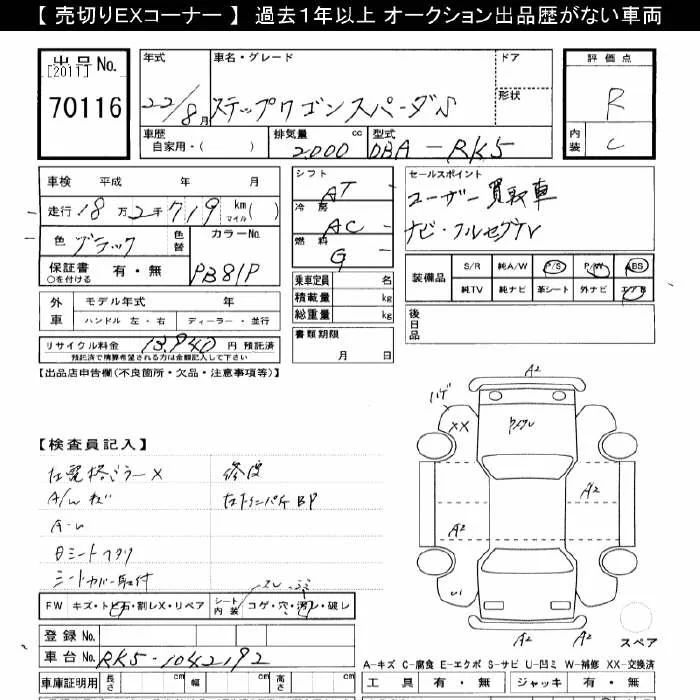 【 売切りEXコーナー 】 過去1年以上 オークション出品歴がない車両
出品No.
[2011]
70116
年式
22/8月
車名・グレード
ステップワゴンスパーダS
ドア
形状
車歴
自家用・( )
排気量 cc
2000
型式
DBA-RK5
評価点
R
内装
C
車検 平成 年 月
走行 18万2千719 km マイル( )
色
ブラック
色替
カラーNo.
PB81P
保証書 ○を付ける 有・無
外車
モデル年式 年
ハンドル 左・右 ディーラー・並行
リサイクル料金 13,940 円 預託済
預託済で精算希望される方は金額記入して下さい
シフト
AT
冷房
AC
燃料
G
乗車定員 名
積載量 kg
総重量 kg
書類期限
月 日
セールスポイント
ユーザー買取車
ナビ・フルセグTV
装備品
S/R 純A/W P/S P/W ABS
純TV 純ナビ 革シート 外ナビ エアB
後日品
【出品店申告欄(不良箇所・欠品・注意事項等)】
【検査員記入】
左電格ミラーX
修復
A/Wキズ
BP
A-U
シートカバー取付
FW キズ・トビ石・割レX・リペア
シート内装 コゲ・穴・汚レ・破レ
登録No.
車台No. RK5-1042192
車庫証明用 長さ 幅 高さ
A2
ハゲ
XX
A2
A2
U1
A2
スペア
A-キズ C-腐食 E-エクボ S-サビ U-凹ミ W-補修 XX-交換済
工具 有・無 ジャッキ 有・無